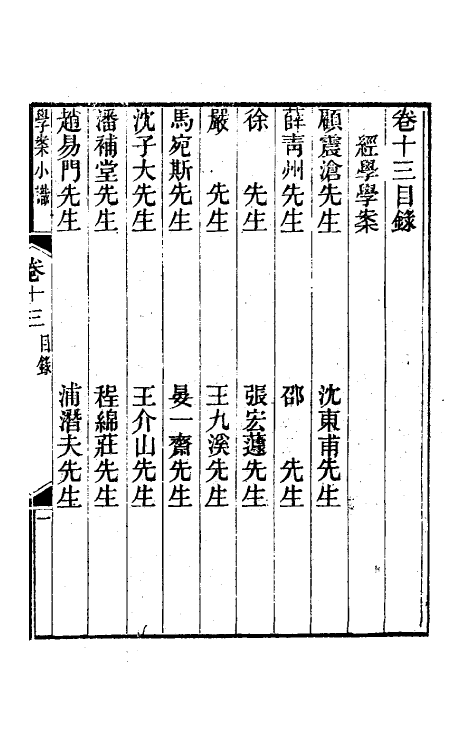 卷十三目錄
經學學案
顧震滄先生　沈東甫先生
薛青州先生　邵　先生
徐　先生　張宏蘧先生
嚴　先生　王九溪先生
馬宛斯先生　晏一齋先生
沈子大先生　王介山先生
潘補堂先生　程綿莊先生
趙易門先生　浦潛夫先生
學案小識　卷十三　目錄　一